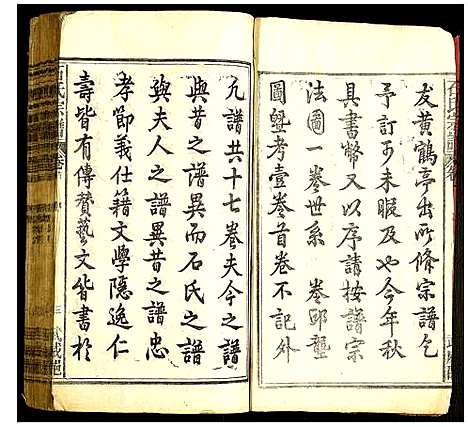 友黃鶴亭出所修宗譜乞
予訂可未暇及也今年秋
具書幣又以序請按譜宗
法圖一卷世系　卷邱壟
圖塋考壹卷首卷不記外
凡譜共十七卷夫今之譜
與昔之譜異而石氏之譜
與夫人之譜異昔之譜忠
孝節義仕籍文學隱逸仁
壽皆有傳贊藝文皆書於
石氏宗譜
氏宗譜